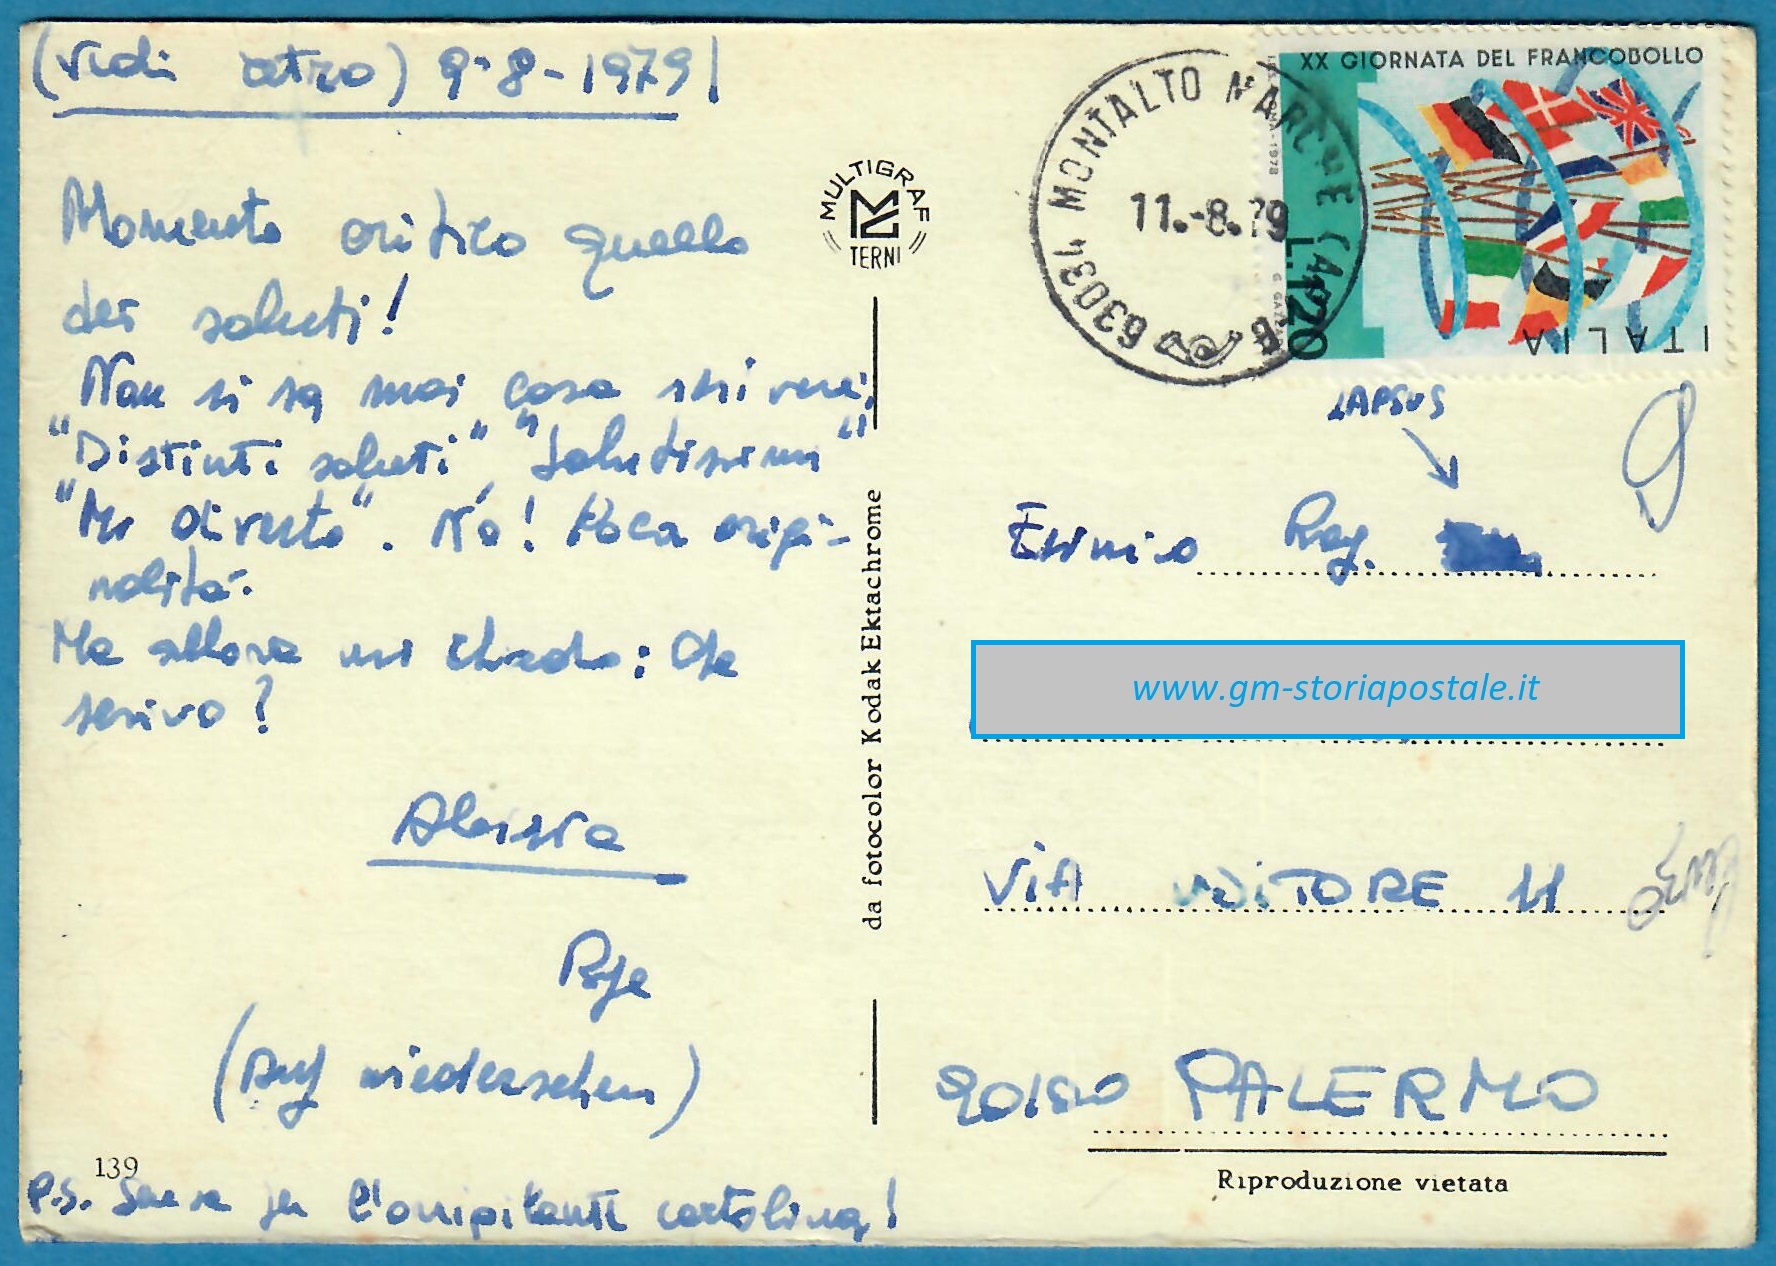 (Vedi retro) 9-8-1979
Momento critico quello
dei saluti!
Non si sa mai cosa scrivere;
"Distinti saluti", "Salutissimi"
"Mi diverto". No! Poca origi-
nalità.
Ma allora mi chiedo: Che
scrivo?
Alessia
(Auf wiedersehen)
139
P.S. Scusa per l'accipicanti cartolina!
MULTIGRAF
TERNI
da fotocolor Kodak Ektachrome
63034 MONTALTO MARCHE (AP)
11.-8.79
XX GIORNATA DEL FRANCOBOLLO
L.120
ITALIA
LAPSUS
Rag.
www.gm-storiapostale.it
VIA VITTORE 11
PALERMO
Riproduzione vietata